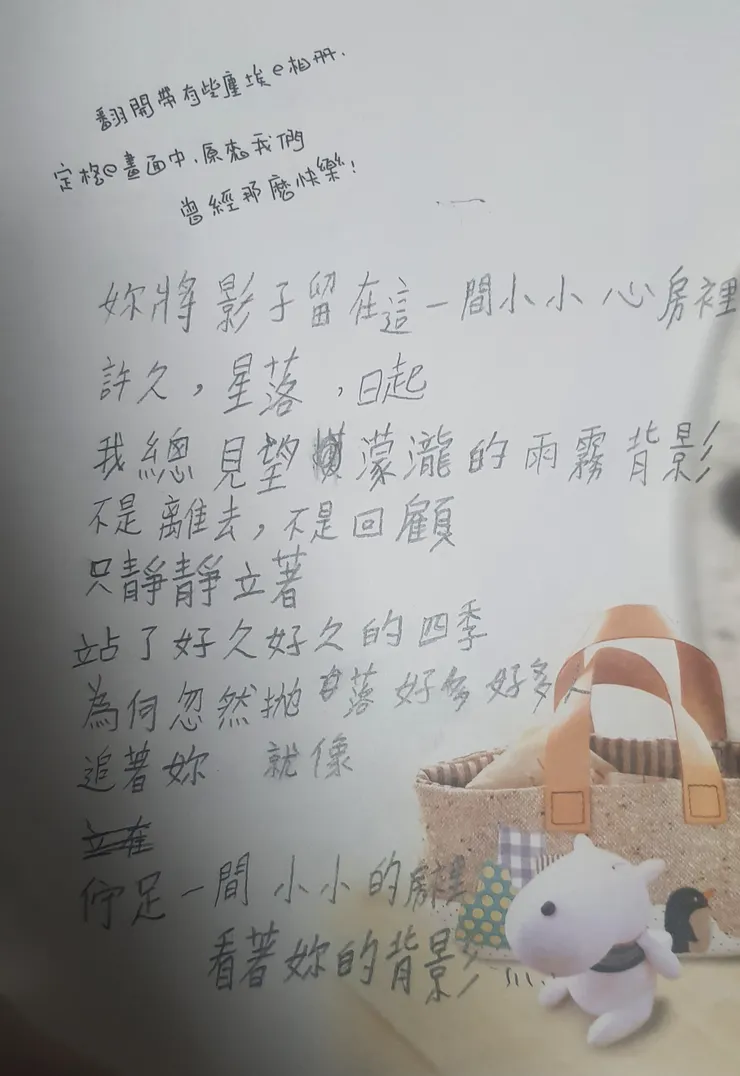 翻開帶有些塵埃e相冊.
定格e畫面中,原來我們
曾經那麼快樂!
妳將影子留在這一間小小心房裡
許久,星落,日起
我總見望濛瀧的雨霧背影
不是離去,不是回顧
只靜靜立著
站了好久好久的四季
為何忽然拋落好多好多人
追著妳 就像
佇足一間小小的房裡
看著妳的背影……